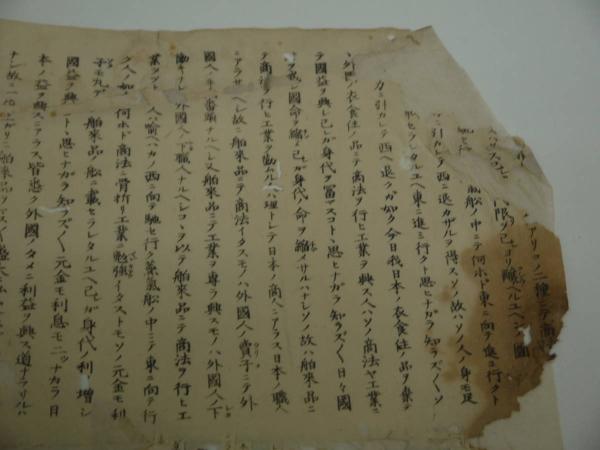 アリコノ二種ニテ商
代限ヲ己ヨリ醸
船ノ中ニテ何ホド東ニ向テ進ミ行クト
引カレテ西ニ退カザルヲ得スソノ故ハソノ人ノ身モ足
セラレタルユヘ東ニ進ミ行クト思ヒナガラ知ラズ〱ソ
力ニ引カレテ西ヘ退クガ如ク今日我日本ノ衣食住ノ品ヲ棄テ
ヽ外国ノ衣食住ノ品ニテ商法ヲ行ヒ工業ヲ興ス人ハソノ商法ヤ工業ニ
テ國益ヲ興シ己レガ身代ヲ冨マスコトヽ思ヒナガラ知ラズ〱日々國
国命ヲ縮メ己ガ身代ノ命ヲ縮メサルハナシソノ故ハ舶來品ニ
テ商法ヲ行ヒ工業ヲ勤ムル人ハ理トシテ日本ノ商人ニアラス日本ノ職人
ニアラサルヘシ故ニ舶來品ニテ商法イタスモノハ外國人ノ賣子ニテ外
國人ノ手代番頭ナルヘシ又舶來品ニテ工業ヲ專ラ興スモノハ外國人ノ下
働キナレ外國人ノ下職人ナルヘシコヽヲ以テ舶來品ニテ商法ヲ行ヒ工
業ヲ立ツル人ハ喩ハカノ西ニ向テ馳セ行ク蒸氣船ノ中ニテ東ニ向テ行
ク人ノ如ク何ホド商法ニ骨折リ工業ニ勉強イタストモソノ元金モ利
子モ丸デ舶來品ノ船ニ載セラレタルユヘ己レガ身代ノ利ヲ増シ
國益ヲ興スコトヽ思ヒナガラ知ラズ〱元金モ利息モ二ツナカラ日
本ノ益ヲ興スニアラス皆悉ク外國ノタメニ利益ヲ興ス道ナラザルハ
ナシ故ニ一 舶來品